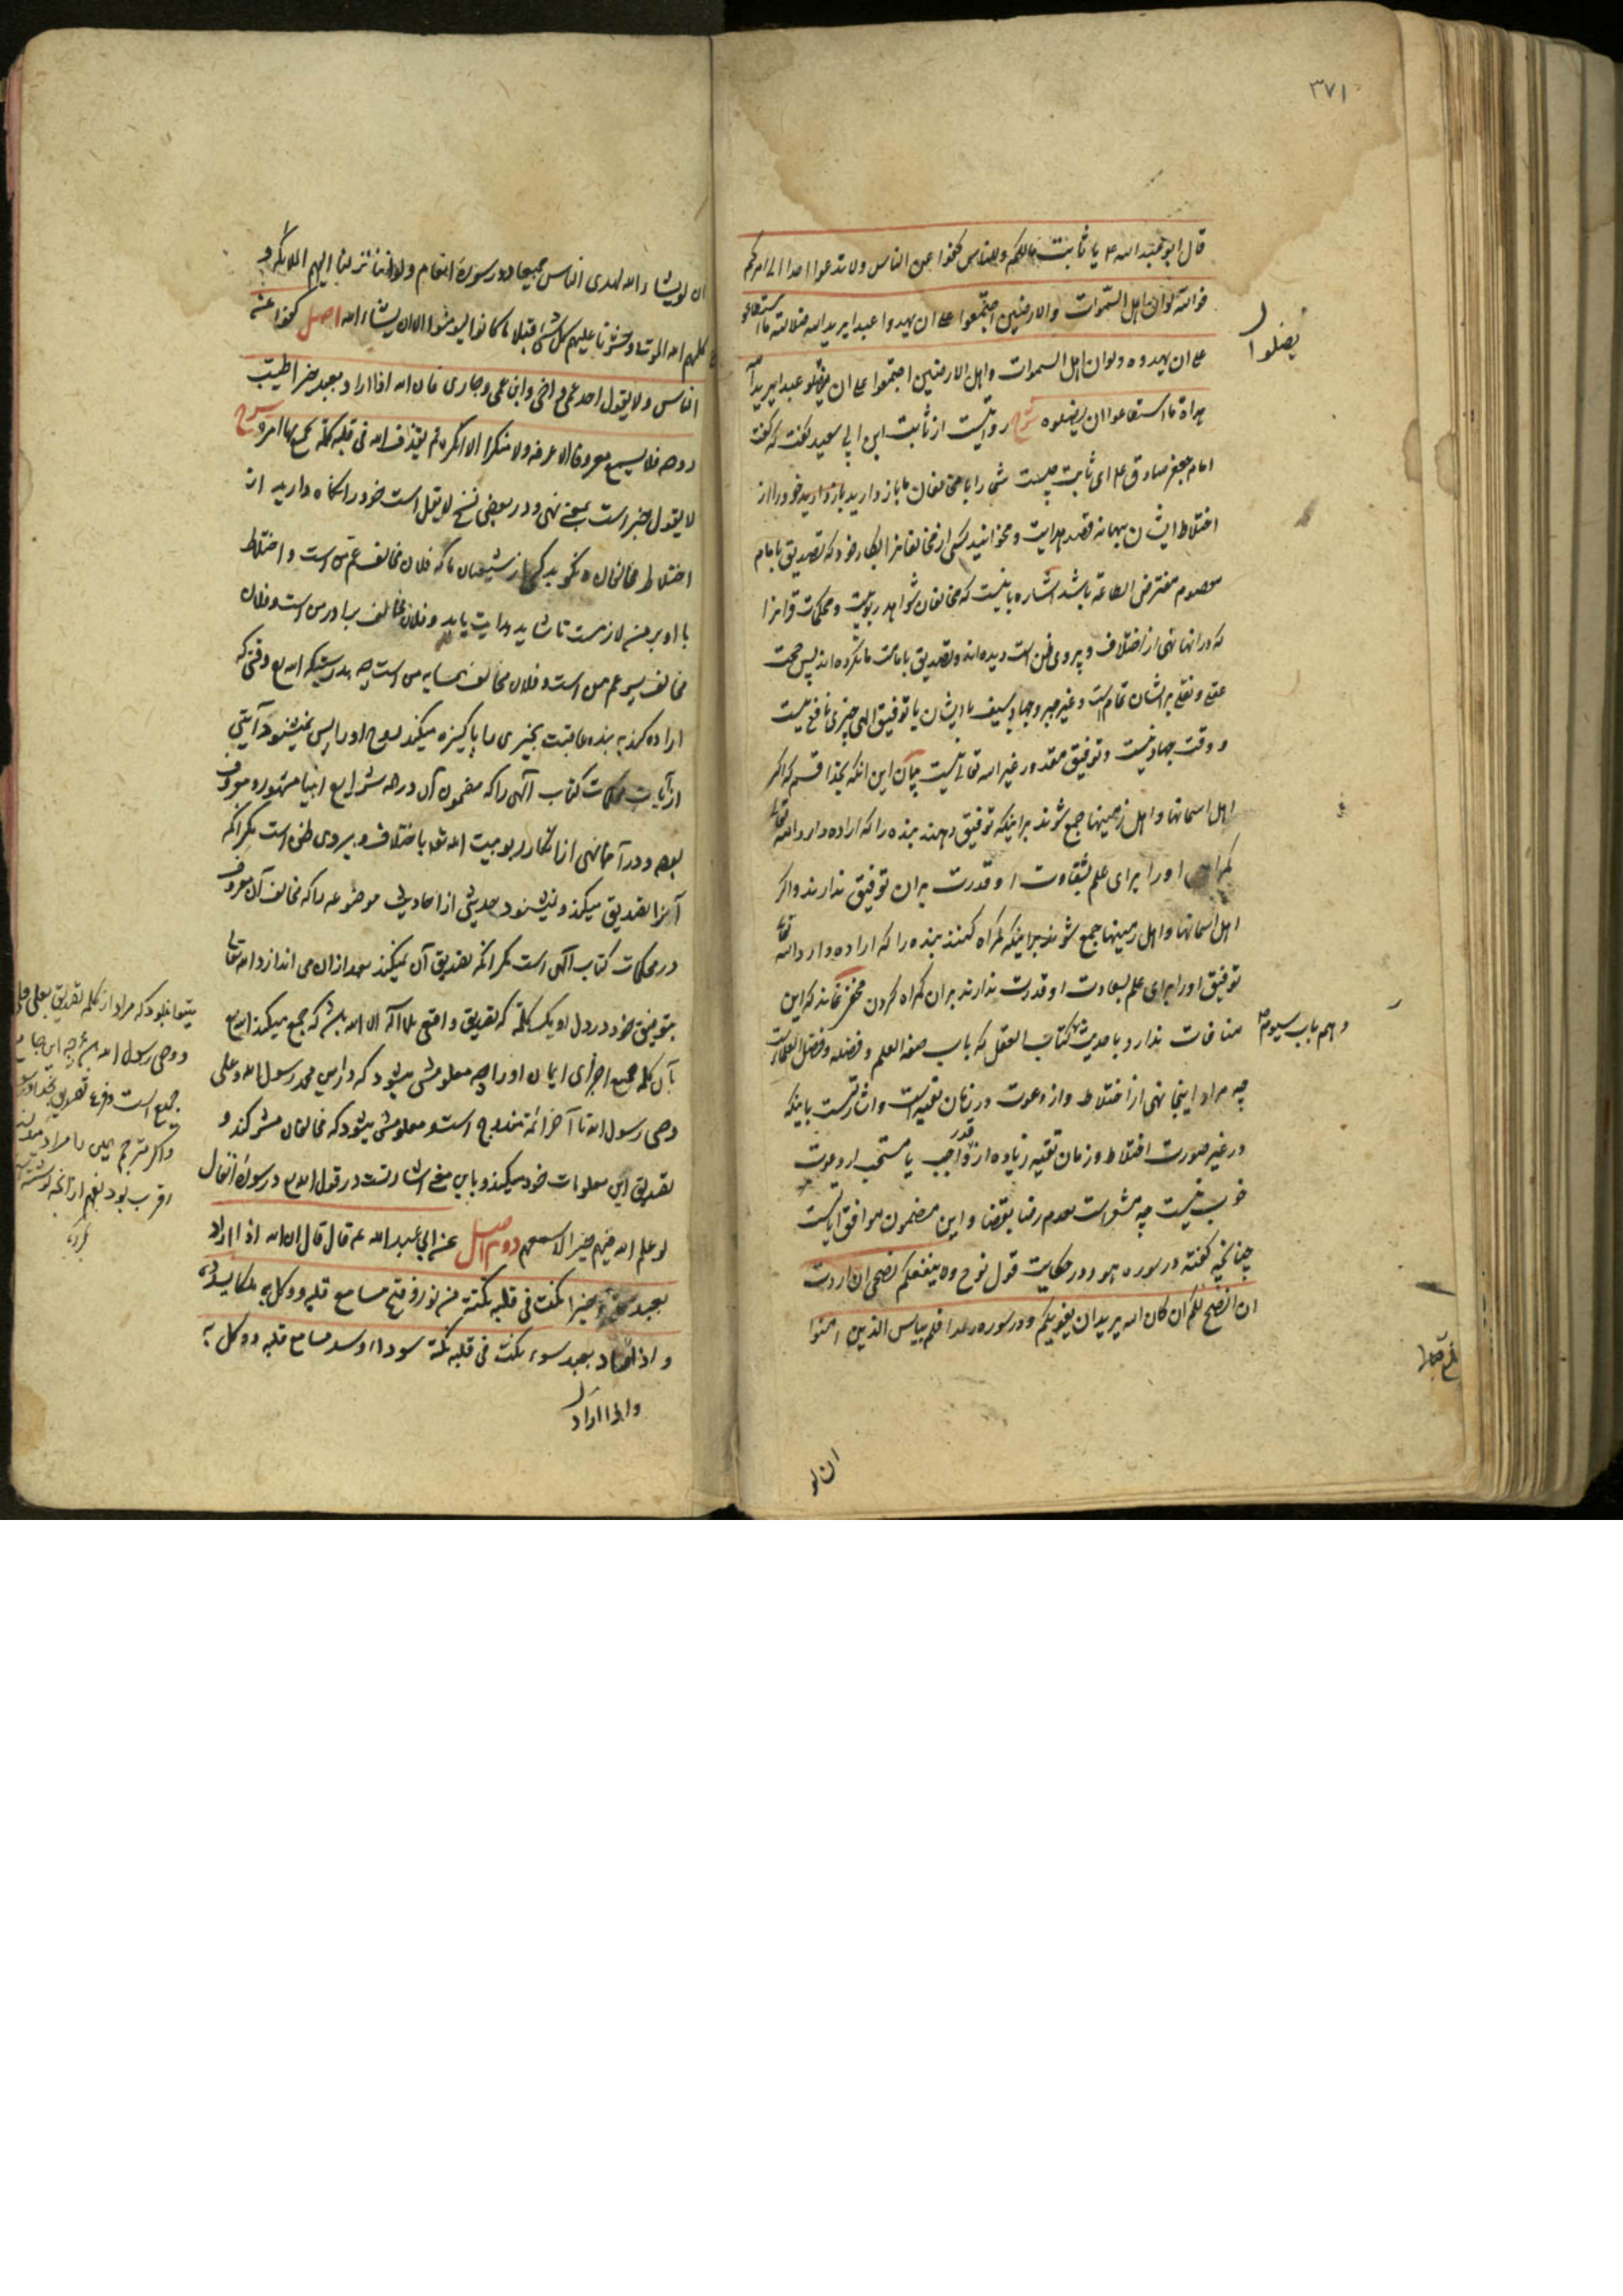 ٣٧١
قال ابو عبد الله ع يا ثابت مالكم وللناس كفوا عن الناس ولا تدعوا احدا الى امركم
فوالله لو ان اهل السموات والارضين اجتمعوا على ان يهدوا عبدا يريد الله ضلالته ما استطاعوا
على ان يهدوه ولو ان اهل السموات واهل الارضين اجتمعوا على ان يضلوا عبدا يريد الله
يضلوا
هداه ما استطاعوا ان يضلوه شرح روايتست از ثابت ابن ابي سعيد گفت كه گفت
امام جعفر صادق ع اى ثابت چيست شما را با مخالفان ما باز داريد باز داريد خود را از
اختلاط ايشان ببهانه قصد هدايت و مخوانيد كسى از مخالفانرا بكار خود كه تصديق بامام
معصوم مفترض الطاعة باشد اشاره باينست كه مخالفان شواهد ربوبيت و محكمات قرانرا
كه در انها نهى از اختلاف و پيروى ظن است ديده اند و تصديق بامامت ما نكرده اند پس حجت
عقلى و نقلى بر ايشان تمام است و غير جبر و جهاد بسيف با ايشان يا توفيق الهى چيزى نافع نيست
و وقت جهاد نيست و توفيق مقدور غير الله تعالى نيست بيان اين انكه بخدا قسم كه اگر
اهل اسمانها و اهل زمينها جمع شوند برا اينكه توفيق دهند بنده را كه اراده دارد الله تعالى
گمراهى او را براى علم بشقاوت او قدرت بران توفيق ندارند و اگر
اهل اسمانها و اهل زمينها جمع شوند برا اينكه گمراه كنند بنده را كه اراده دارد الله تعالى
توفيق او را براى علم بسعادت او قدرت ندارند بران گمراه كردن مخفى نماند كه اين
منافات ندارد با حديث نهم كتاب العقل كه باب صفة العلم و فضله و فضل العلماست
دهم باب سيوم
چه مراد اينجا نهى از اختلاط و از دعوت در زمان تقيه است و اشارتست باينكه
در غير صورت اختلاط و زمان تقيه زياده از قدر واجب يا مستحب از دعوت
خوب نيست چه مشعر است بعدم رضا بقضا و اين مضمون موافق اياتست
چنانچه گفته در سوره هود در حكايت قول نوح ولا ينفعكم نصحى ان اردت
ان انصح لكم ان كان الله يريد ان يغويكم و در سوره رعد افلم ييأس الذين امنوا
ان لو
ان لو يشاء الله لهدى الناس جميعا و در سورۀ انعام ولو اننا نزلنا اليهم الملائكة و
كلمهم الموتى وحشرنا عليهم كل شئ قبلا ما كانوا ليؤمنوا الا ان يشاء الله اصل كفوا عن
الناس ولا يقول احد عمى واخى وابن عمى وجارى فان الله اذا اراد بعبد خيرا طيب
روحه فلا يسمع معروفا الا عرفه ولا منكرا الا انكره ثم يقذف الله فى قلبه كلمة يجمع بها امره شرح
لا يقول خبر است بمعنى نهى و در بعضى نسخ لا يقل است خود را نگاه داريد از
اختلاط مخالفان و نگويد كسى از شيعيان ما كه فلان مخالف عم من است و اختلاط
با او بر من لازمست تا شايد هدايت يابد و فلان مخالف برادر من است و فلان
مخالف پسر عم من است و فلان مخالف همسايه من است چه بدرستيكه الله تع وقتى كه
اراده كند به بنده عاقبت بخيرى را پاكيزه ميكند روح او را پس نميشنود آيتى
از آيات محكمات كتاب آلهى را كه مضمون آن در همه شرايع انبيا مشهور و معروف
بوده و در آنها نهى از انكار ربوبيت الله باشد باختلاف و پيروى ظن است مگر انكه
آنرا تصديق ميكند و نميشنود حديثى از احاديث موضوعه را كه مخالف آن معروف
در محكمات كتاب آلهى است مگر انكه تصديق آن نميكند بعد ازان مى اندازد الله تعالى
بتوفيق خود در دل او يك كلمه كه تصديق واقعى بلا اله الا الله باشد كه جمع ميكند الله تع
بآن كلمه جميع اجزاى ايمان او را چه معلومش ميشود كه در اين محمد رسول الله و على
وصى رسول الله تا آخر ائمه مندرج است و معلومش ميشود كه مخالفان مشركند و
تصديق اين معلومات خود ميكند و باين معنى اشارتست در قول الله تع در سورۀ انفال
لو علم الله فيهم خيرا لاسمعهم دوم اصل عن ابي عبد الله ع قال قال ان الله اذا اراد
بعبد خيرا نكت فى قلبه نكتة من نور وفتح مسامع قلبه ووكل به ملكا يسدده
و اذا اراد بعبد سوءا نكت فى قلبه نكتة سوداء وسد مسامع قلبه ووكل به
واذا اراد